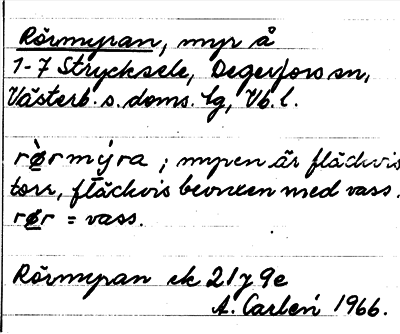 Rörmyran, myr å
1-7 Strycksele, Degerfors sn,
Västerb. s. doms. lg, Vb. l.
rø̀rmýra ; myren är fläckvis
torr, fläckvis bevuxen med vass.
rør = vass.
Rörmyran ek 21 J 9e
A. Carlén 1966.